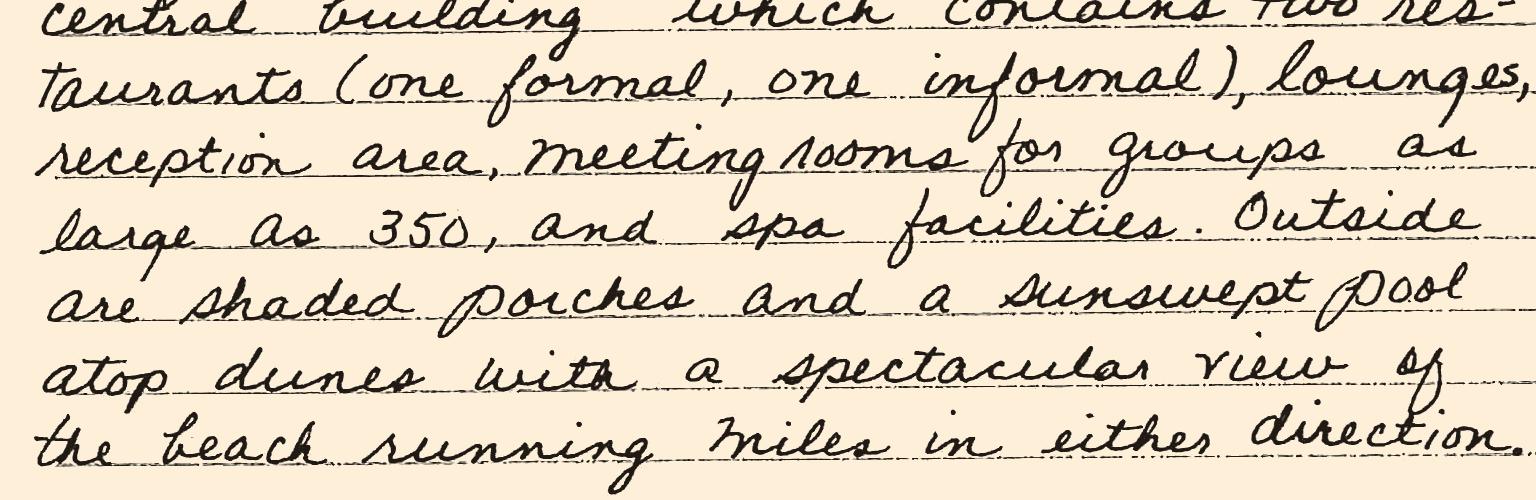 central building which contains two res-
taurants (one formal, one informal), lounges,
reception area, meeting rooms for groups as
large as 350, and spa facilities. Outside
are shaded porches and a sunswept pool
atop dunes with a spectacular view of
the beach running miles in either direction.